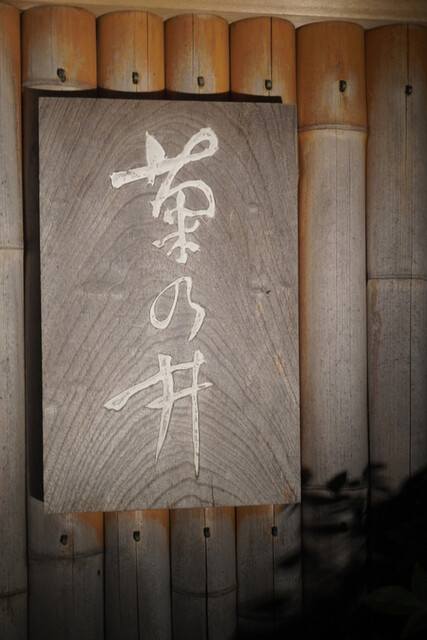 菊の井